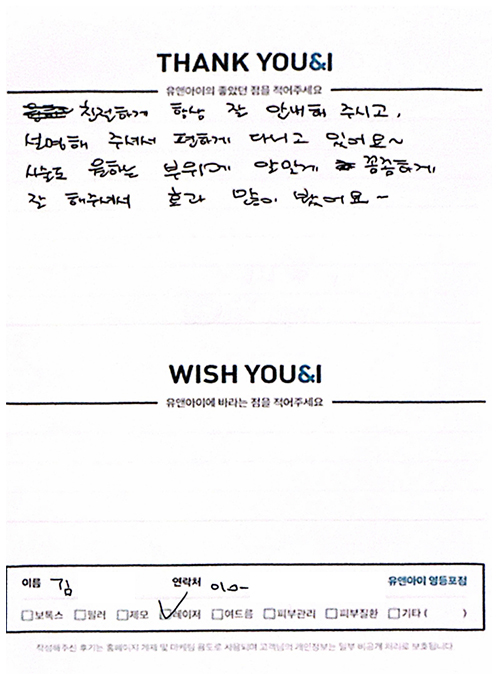 THANK YOU&I
유앤아이의 좋았던 점을 적어주세요
친절하게 항상 잘 안내해 주시고,
설명해 주셔서 편하게 다니고 있어요~
시술도 원하는 부위에 알맞게 꼼꼼하게
잘 해주셔서 효과 많이 봤어요~
WISH YOU&I
유앤아이에 바라는 점을 적어주세요
이름 김 연락처 010- 유앤아이 영등포점
보톡스 필러 제모 레이저 여드름 피부관리 피부질환 기타 ( )
작성해주신 후기는 홈페이지 게재 및 마케팅 용도로 사용되며 고객님의 개인정보는 일부 비공개 처리로 보호됩니다